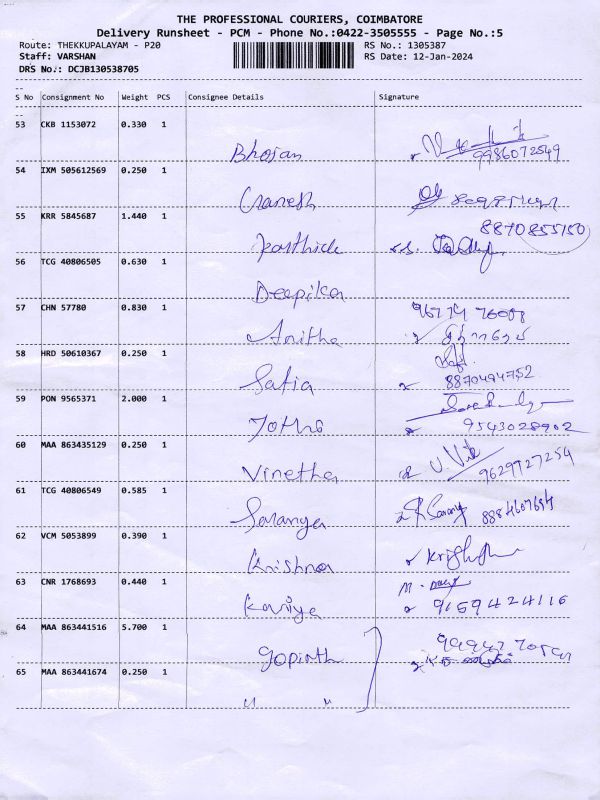 THE PROFESSIONAL COURIERS, COIMBATORE
Delivery Runsheet - PCM - Phone No.:0422-3505555 - Page No.:5
Route: THEKKUPALAYAM - P20 RS No.: 1305387
Staff: VARSHAN RS Date: 12-Jan-2024
DRS No.: DCJB130538705
S No Consignment No Weight PCS Consignee Details Signature
53 CKB 1153072 0.330 1
Bhojan 9986072549
54 IXM 505612569 0.250 1
Ganesh
55 KRR 5845687 1.440 1
8870855150
Karthick
56 TCG 40806505 0.630 1
Deepika
57 CHN 57780 0.830 1
Anitha
58 HRD 50610367 0.250 1
Satia 8870494752
59 PON 9565371 2.000 1
9543028902
60 MAA 863435129 0.250 1
Vinetha 9629927254
61 TCG 40806549 0.585 1
Saranya 8884607694
62 VCM 5053899 0.390 1
Krishna
63 CNR 1768693 0.440 1
Kaviya 9159424116
64 MAA 863441516 5.700 1
gopinath
65 MAA 863441674 0.250 1
" "